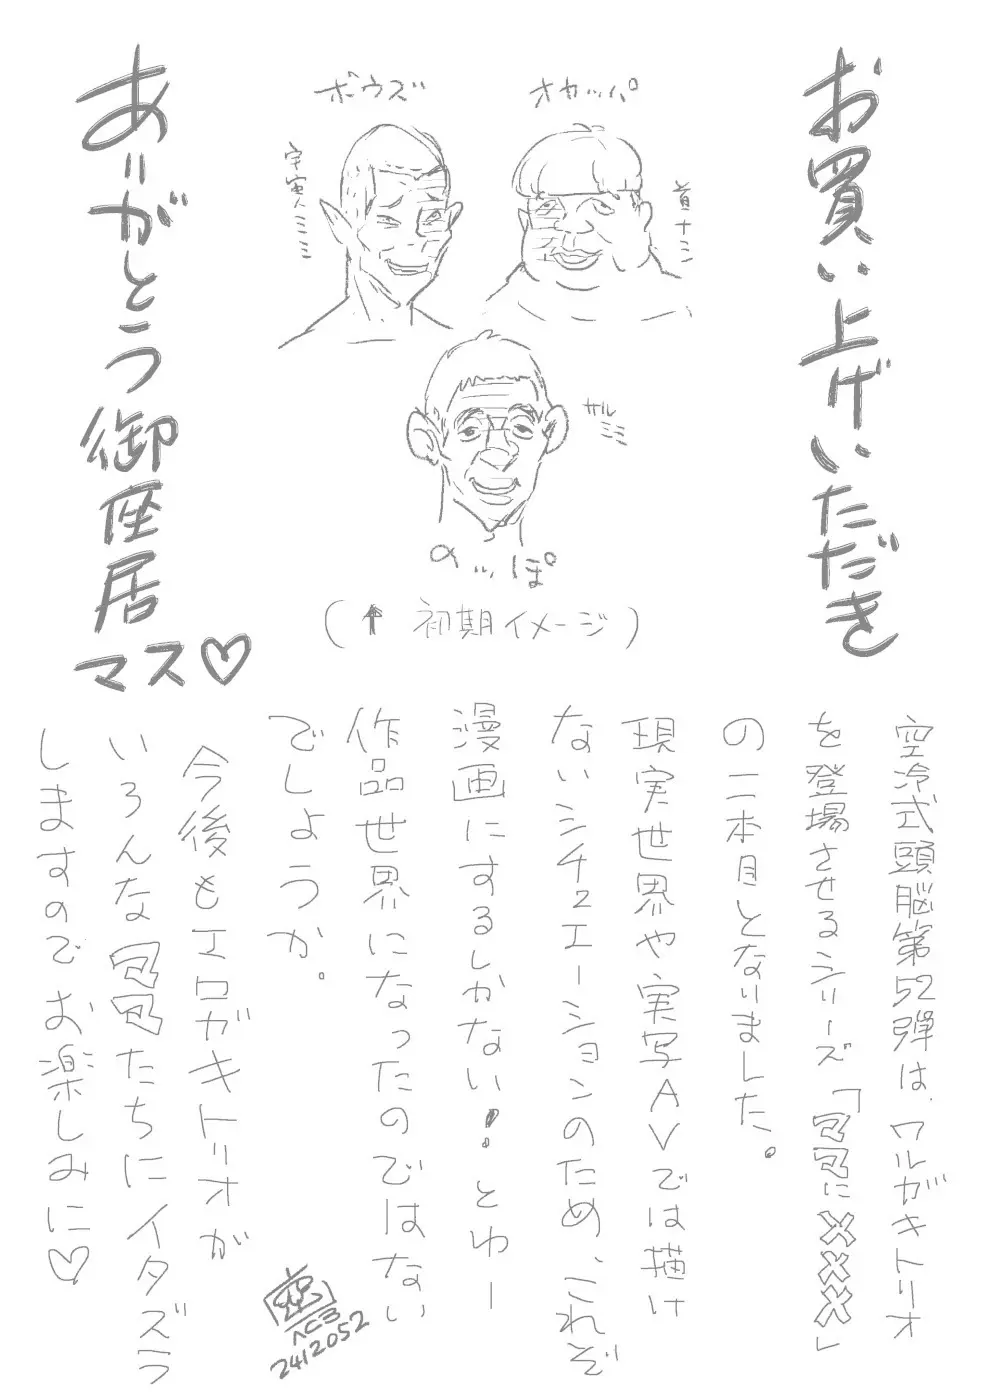 お買い上げいただき
ありがとう御座居
マス♡
オカッパ
首ナシ
ボウズ
宇宙人ミミ
サルミミ
のッぽ
(↑初期イメージ)
空冷式頭脳第52弾は、ワルガキトリオ
を登場させるシリーズ「ママに×××」
の二本目となりました。
現実世界や実写AVでは描け
ないシチュエーションのため、これぞ
漫画にするしかない!とゆー
作品世界になったのではない
でしょうか。
今後もエロガキトリオが
いろんなママたちにイタズラ
しますのでお楽しみに♡
空
AC3
2412052